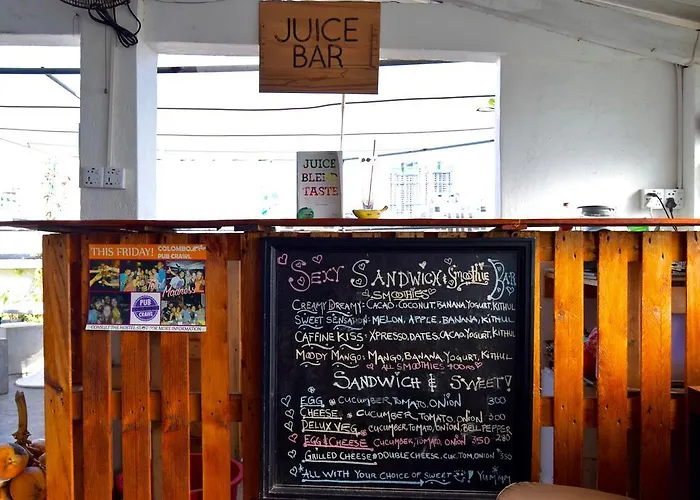 JUICE
BAR
JUICE
BLEND
TASTE
THIS FRIDAY! COLOMBO
PUB CRAWL
Madness
PUB
CRAWL
CONSULT THE HOSTEL STAFF FOR MORE INFORMATION
SEXY SANDWICH & SMOOTHIE BAR
SMOOTHIES
CREAMY DREAMY: CACAO, COCONUT, BANANA, YOGURT, KITHUL
SWEET SENSATION: MELON, APPLE, BANANA, KITHUL
CAFFINE KISS: XPRESSO, DATES, CACAO, YOGURT, KITHUL
MOODY MANGO: MANGO, BANANA, YOGURT, KITHUL
ALL SMOOTHIES 400RS
SANDWICH & SWEET!
EGG CUCUMBER, TOMATO, ONION 300
CHEESE CUCUMBER, TOMATO, ONION 300
DELUX VEG CUCUMBER, TOMATO, ONION, BELL PEPPER 280
EGG & CHEESE CUCUMBER, TOMATO, ONION 350
GRILLED CHEESE DOUBLE CHEESE, CUC, TOM, ONION 350
ALL WITH YOUR CHOICE OF SWEET! YUM